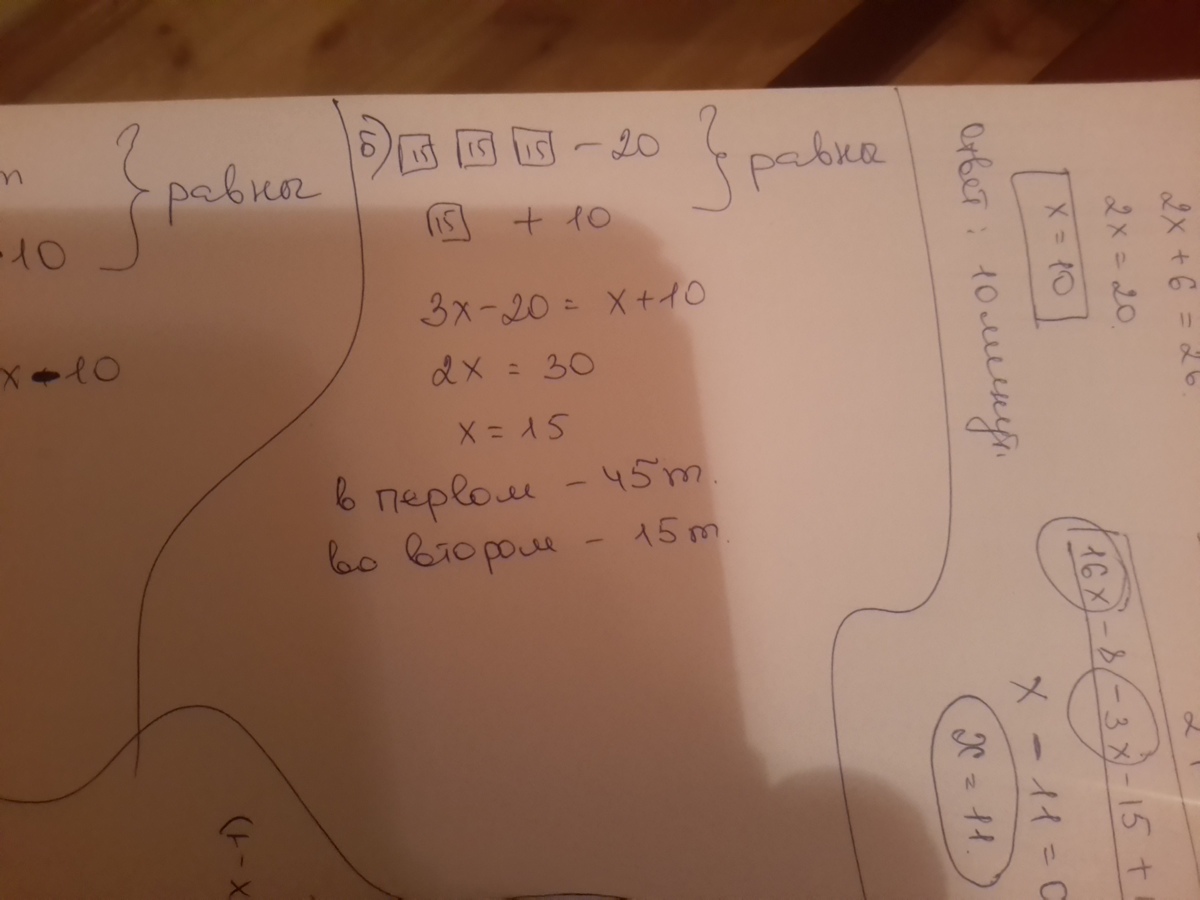 равны
10
x-10
б) 15 15 15 - 20
15 + 10
равны
3x-20 = x+10
2x = 30
x = 15
в первом - 45т.
во втором - 15т.
2x+6=26
2x=20
x=10
ответ: 10 минут.
16x-8-3x-15+
x-11=0
x=11.